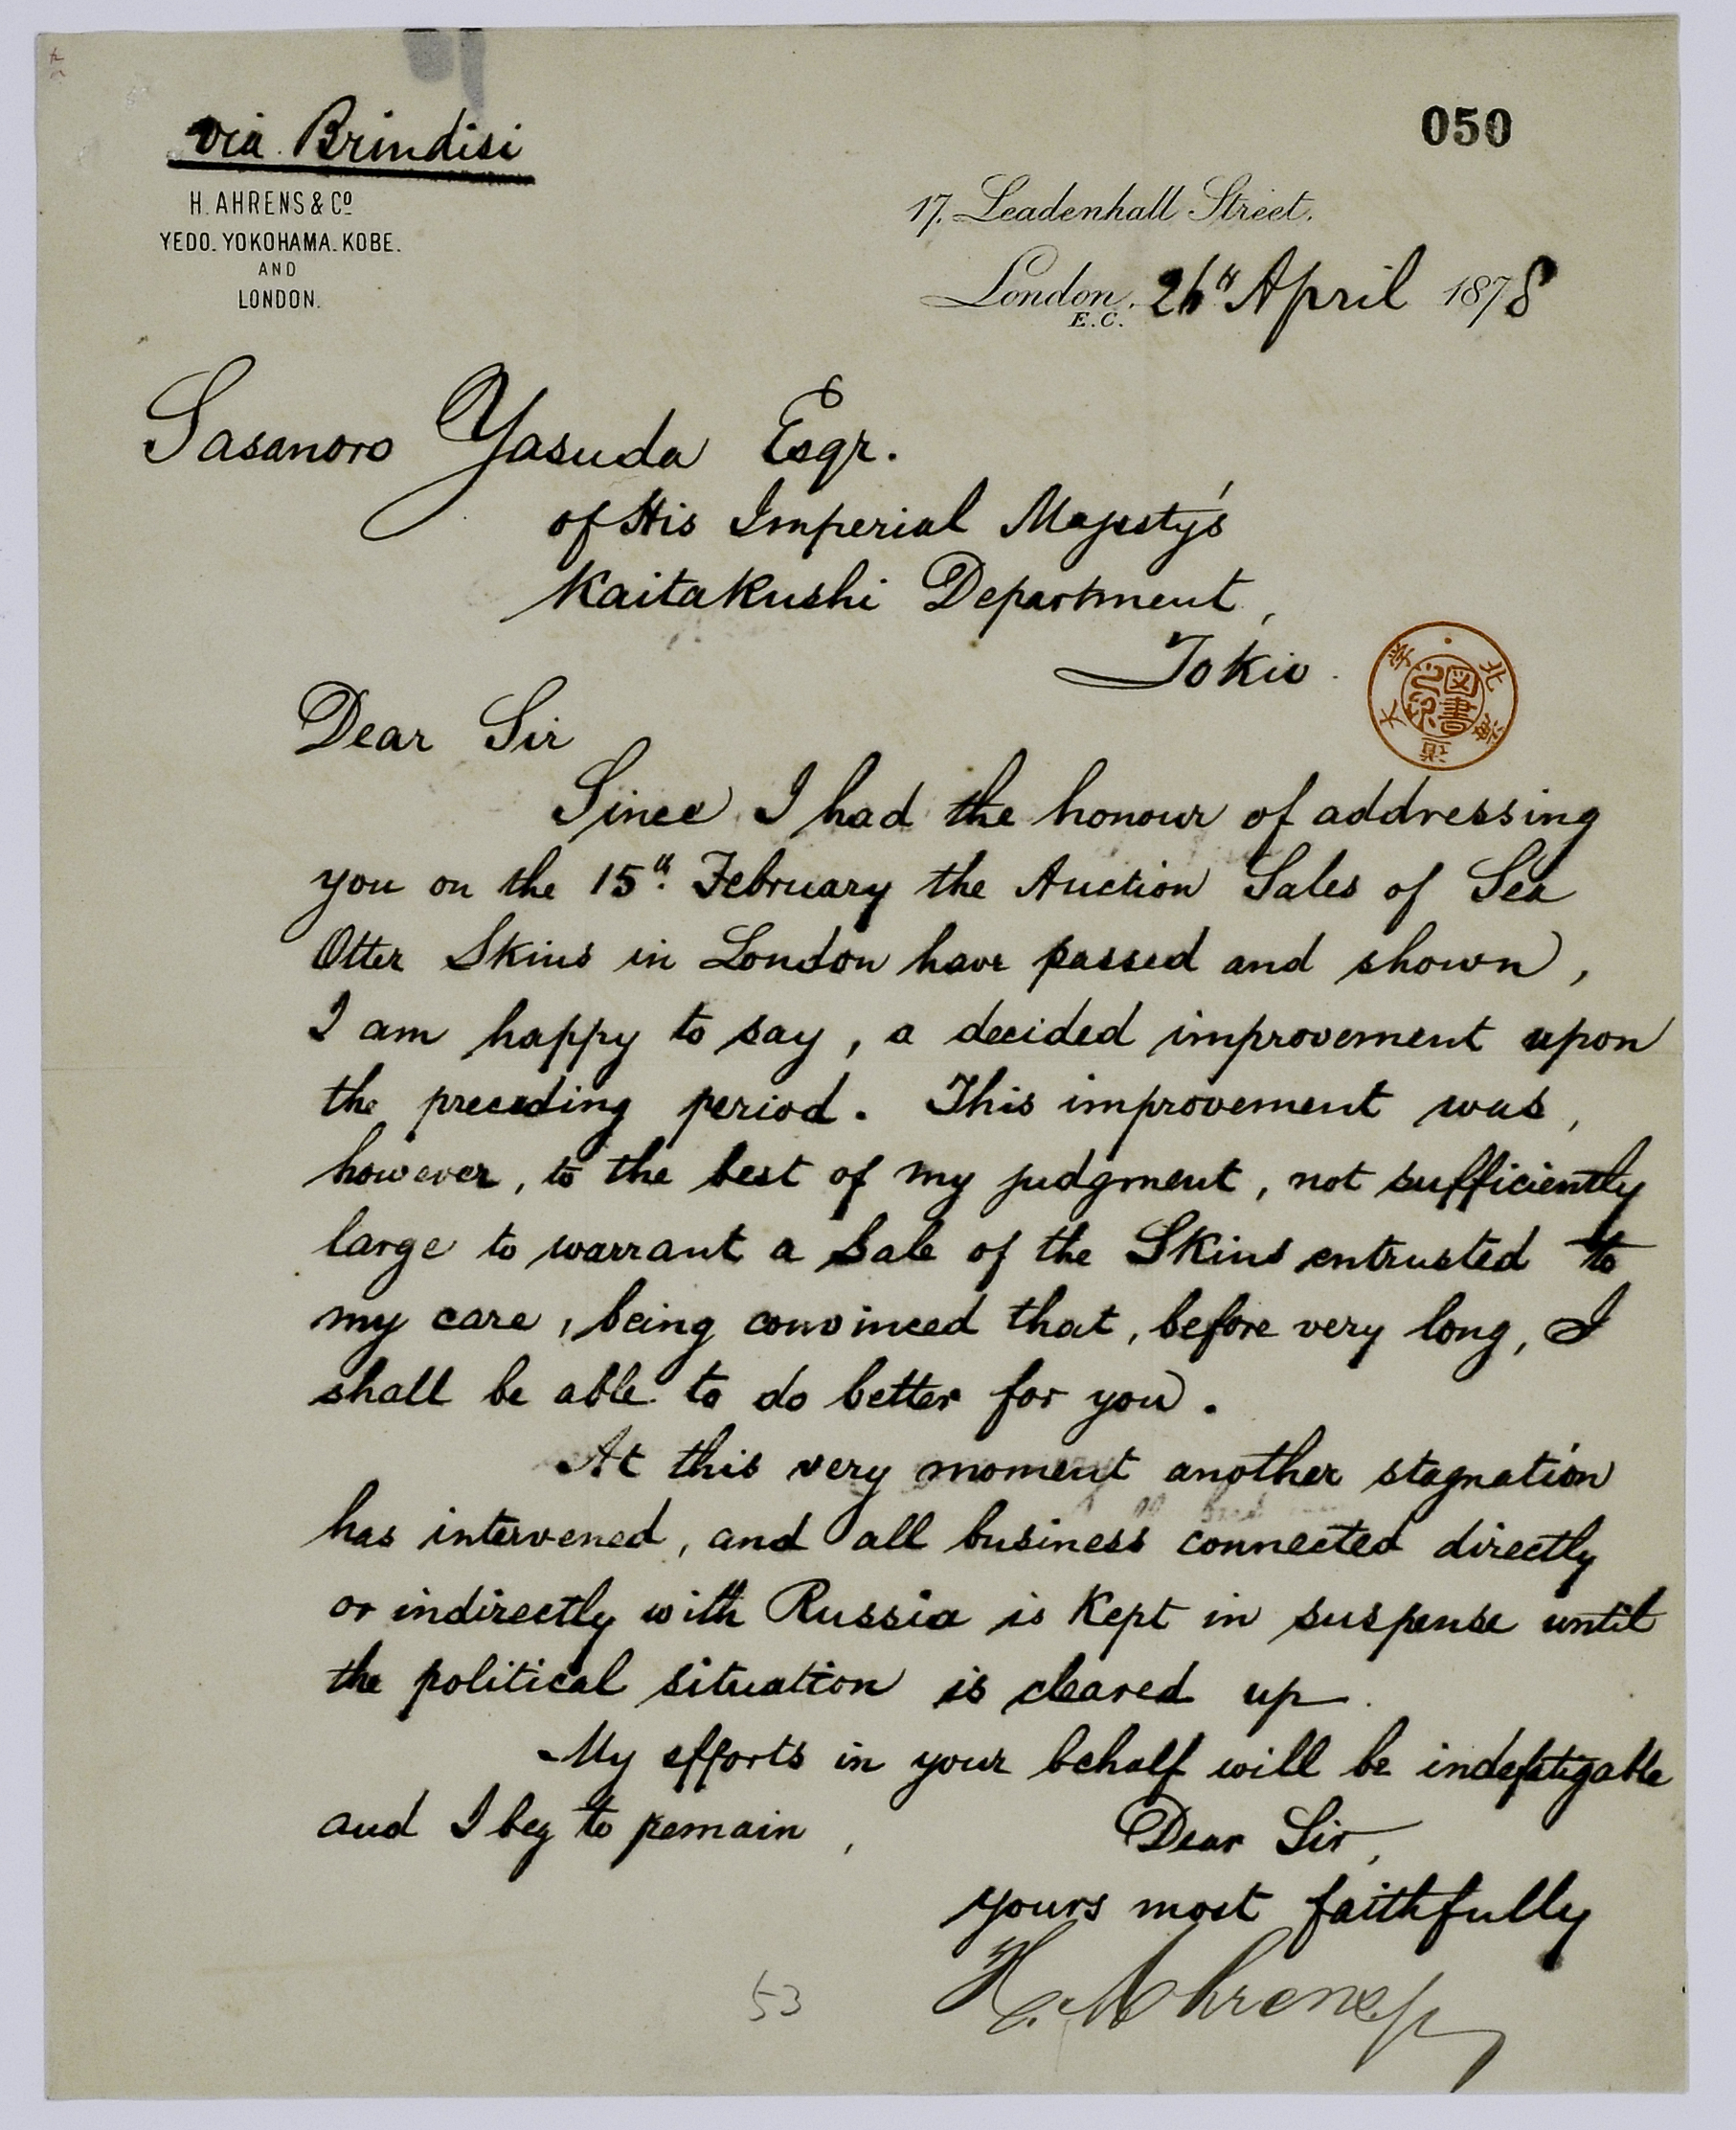 via Brindisi
050
H. AHRENS & Cº
YEDO. YOKOHAMA. KOBE.
AND
LONDON.
17. Leadenhall Street.
London. 26th April 1878
E.C.
Sasanoro Yasuda Esqr.
of His Imperial Majesty's
Kaitakushi Department,
Tokio.
北海道大学
図書
Dear Sir
Since I had the honour of addressing
you on the 15th. February the Auction Sales of Sea
Otter Skins in London have passed and shown,
I am happy to say, a decided improvement upon
the preceding period. This improvement was,
however, to the best of my judgment, not sufficiently
large to warrant a Sale of the Skins entrusted to
my care, being convinced that, before very long, I
shall be able to do better for you.
At this very moment another stagnation
has intervened, and all business connected directly
or indirectly with Russia is kept in suspense until
the political situation is cleared up.
My efforts in your behalf will be indefatigable
and I beg to remain,
Dear Sir,
yours most faithfully
H. Ahrens
53